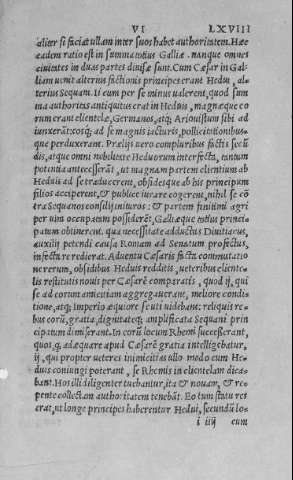 VI LXVIII
aliter si faciat ullam inter suos habet authoritatem. Hæc
eadem ratio est in summa totius Galliæ. nanque omnes
ciuitates in duas partes diuisæ sunt. Cum Cæsar in Gal-
liam uenit alterius factionis principes erant Hedui, al-
terius Sequani. ij cum per se minus ualerent, quod sum
ma authoritas antiquitus erat in Heduis, magnæque eo
rum erant clientelæ, Germanos, atq; Ariouistum sibi ad
iunxerãt: eosq; ad se magnis iacturis, pollicitationibus-
que perduxerant. Prælijs uero compluribus factis secũ
dis, atque omni nobilitate Heduorum interfecta, tantum
potentia antecesserãt, ut magnam partem clientium ab
Heduis ad se traducerent, obsidesque ab his principum
filios acciperent, & publice iurare cogerent, nihil se cõ
tra Sequanos consilij inituros: & partem finitimi agri
per uim occupatam possiderẽt, Galliæque totius princi-
patum obtinerent. qua necessitate adductus Diuitiacus,
auxilij petendi causa Romam ad Senatum profectus,
infecta re redierat. Aduentu Cæsaris facta commutatio
ne rerum, obsidibus Heduis redditis, ueteribus cliente-
lis restitutis nouis per Cæsarẽ comparatis, quod ij, qui
se ad eorum amicitiam aggregauerant, meliore condi-
tione, atq; imperio æquiore se uti uidebant: reliquis re-
bus eorũ, gratia, dignitateq; amplificata Sequani prin
cipatum dimiserant. In eorũ locum Rhemi successerant,
quos, q; adæquare apud Cæsarẽ gratia intelligebatur,
ij, qui propter ueteres inimicitias ullo modo cum He-
duis coniungi poterant, se Rhemis in clientelam dica-
bant. Hos illi diligenter tuebantur, ita & nouam, & re-
pente collectam authoritatem tenebãt. Eo tum statu res
erat, ut longe principes haberentur Hedui, secundũ lo-
i iiij cum